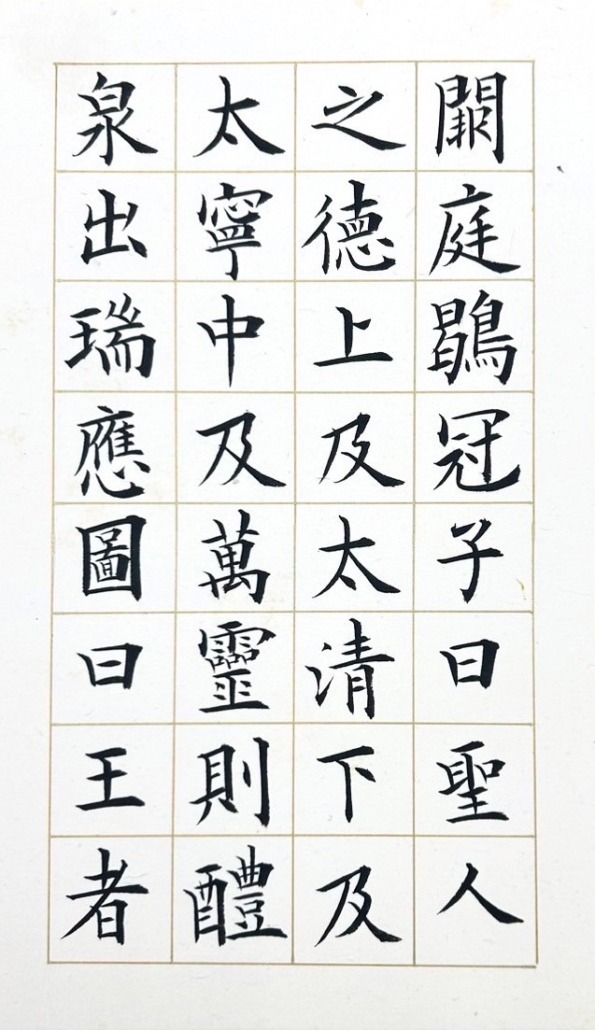 闕庭鶡冠子曰聖人
之德上及太清下及
太寧中及萬靈則醴
泉出瑞應圖曰王者